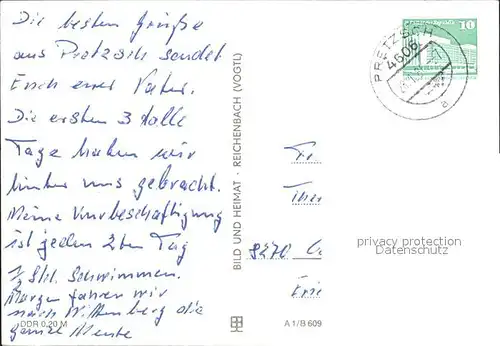 Die besten Grüße
aus Pretzsch sendet
Euch euer Vater.
Die ersten 3 tolle
Tage haben wir
hinter uns gebracht.
Meine Kurbeschäftigung
ist jeden 2ten Tag
½ Std. Schwimmen.
Morgen fahren wir
nach Wittenberg die
ganze Meute
DDR 0,20 M
BILD UND HEIMAT · REICHENBACH (VOGTL)
A 1/B 609
PRETZSCH
4606
a
10
8270
privacy protection
Datenschutz